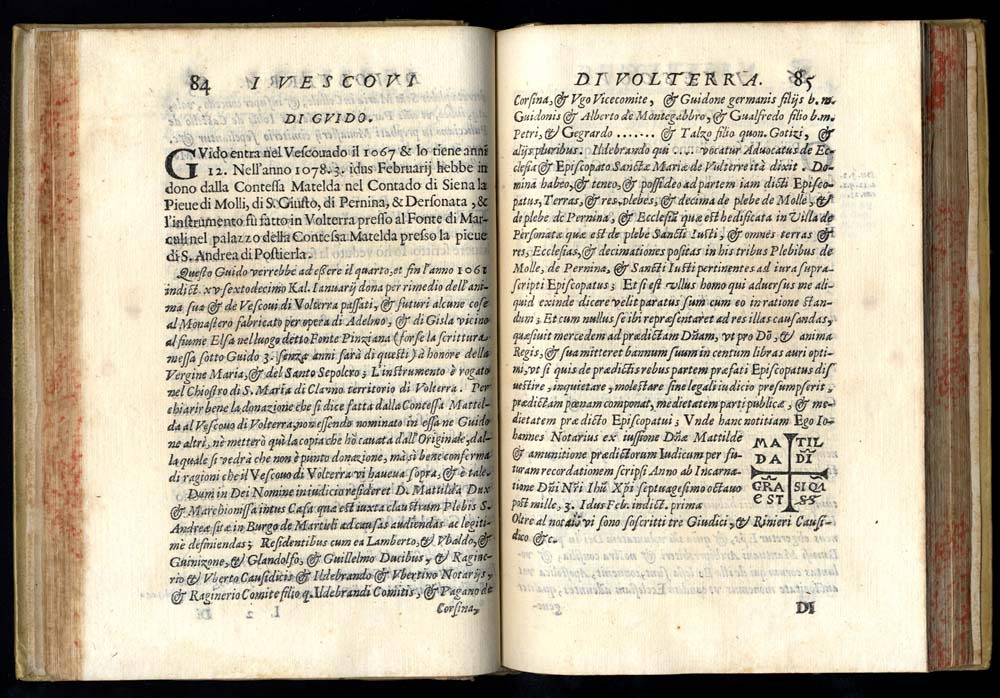 84 I VESCOVI
DI GVIDO.
GVido entra nel Vescouado il 1067 & lo tiene anni
12. Nell'anno 1078. 3. idus Februarij hebbe in
dono dalla Contessa Matelda nel Contado di Siena la
Pieue di Molli, di S. Giusto, di Pernina, & Personata, &
l'instrumento fu fatto in Volterra presso al Fonte di Mar-
culi nel palazzo della Contessa Matelda presso la pieue
di S. Andrea di Postierla.
Questo Guido verrebbe ad essere il quarto, et fin l'anno 1061
indict. xv. sextodecimo Kal. Ianuarij dona per rimedio dell'ani
ma sua & de Vescoui di Volterra passati, & futuri alcune cose
al Monastero fabricato per opera di Adelmo, & di Gisla vicino
al fiume Elsa nel luogo detto Fonte Pinziana (forse la scrittura
messa sotto Guido 3. senza anni sarà di questi) à honore della
Vergine Maria, & del Santo Sepolcro; L'instrumento è rogato
nel Chiostro di S. Maria di Clanno territorio di Volterra. Per
chiarir bene la donazione che si dice fatta dalla Contessa Mattel-
da al Vescouo di Volterra, non essendo nominato in essa ne Guido
ne altri, nè metterò quì la copia che hò cauata dall'Originale, dal-
la quale si vedrà che non è punto donazione, ma sì bene conferma
di ragioni che il Vescouo di Volterra vi haueua sopra, & è tale.
Dum in Dei Nomine in iudicio resideret D. Mattilda Dux
& Marchionissa intus Casa quæ est iuxta claustrum Plebis S.
Andreæ sitæ in Burgo de Martuli ad causas audiendas ac legiti
me definiendas; Residentibus cum ea Lamberto, & Vbaldo, &
Guinizone, & Glandolfo, & Guillelmo Ducibus, & Raginε-
rio & Vberto Causidicis & Ildebrando & Vbertino Notarijs,
& Raginerio Comite filio q. Ildebrandi Comitis, & Pagano de
L 2 Corsina,
DI VOLTERRA. 85
Corsina, & Vgo Vicecomite, & Guidone germanis filijs b. m.
Guidonis & Alberto de Montegabbro, & Gualfredo filio b. m.
Petri, & Gegrardo ....... & Talzo filio quon. Gotizi, &
alijs pluribus. Ildebrando qui .... vocatur Aduocatus de Ec-
clesia & Episcopato Sanctæ Mariæ de Vulterre ità dixit. Do-
mina habeo, & teneo, & possideo ad partem iam dicti Episco-
patus, Terras, & res, plebes, & decima de plebe de Molle, &
de plebe de Pernina, & Ecclesiã quæ est hedificata in Villa de
Personata quæ est de plebe Sancti Iusti, & omnes terras &
res, Ecclesias, & decimationes positas in his tribus Plebibus de
Molle, de Pernina, & Sancti Iusti pertinentes ad iura supra-
scripti Episcopatus; Et si est vllus homo qui aduersus me ali-
quid exinde dicere velit paratus sum cum eo in ratione stan-
dum; Et cum nullus se ibi repræsentaret ad res illas causandas,
quæsiuit mercedem ad prædictam Dñam, vt pro Dõ, & anima
Regis, & sua mitteret bannum suum in centum libras auri opti-
mi, vt si quis de prædictis rebus partem præfati Episcopatus dis
uestire, inquietare, molestare sine legali iudicio præsumpserit,
prædictam pœnam componat, medietatem parti publicæ, & me-
dietatem prædicto Episcopatui; Vnde hanc notitiam Ego Io-
hannes Notarius ex iussione Dñæ Mattilde
& amunitione prædictorum Iudicum per fu-
turam recordationem scripsi Anno ab Incarna-
tione Dñi Nrĩ Ihũ Xp̃i septuagesimo octauo
post mille, 3. Idus Feb. indict. prima
MA TIL
DA DI
GRA SIQA
EST
Oltre al notaio vi sono soscritti tre Giudici, & Rinieri Causi-
dico &c.
DI